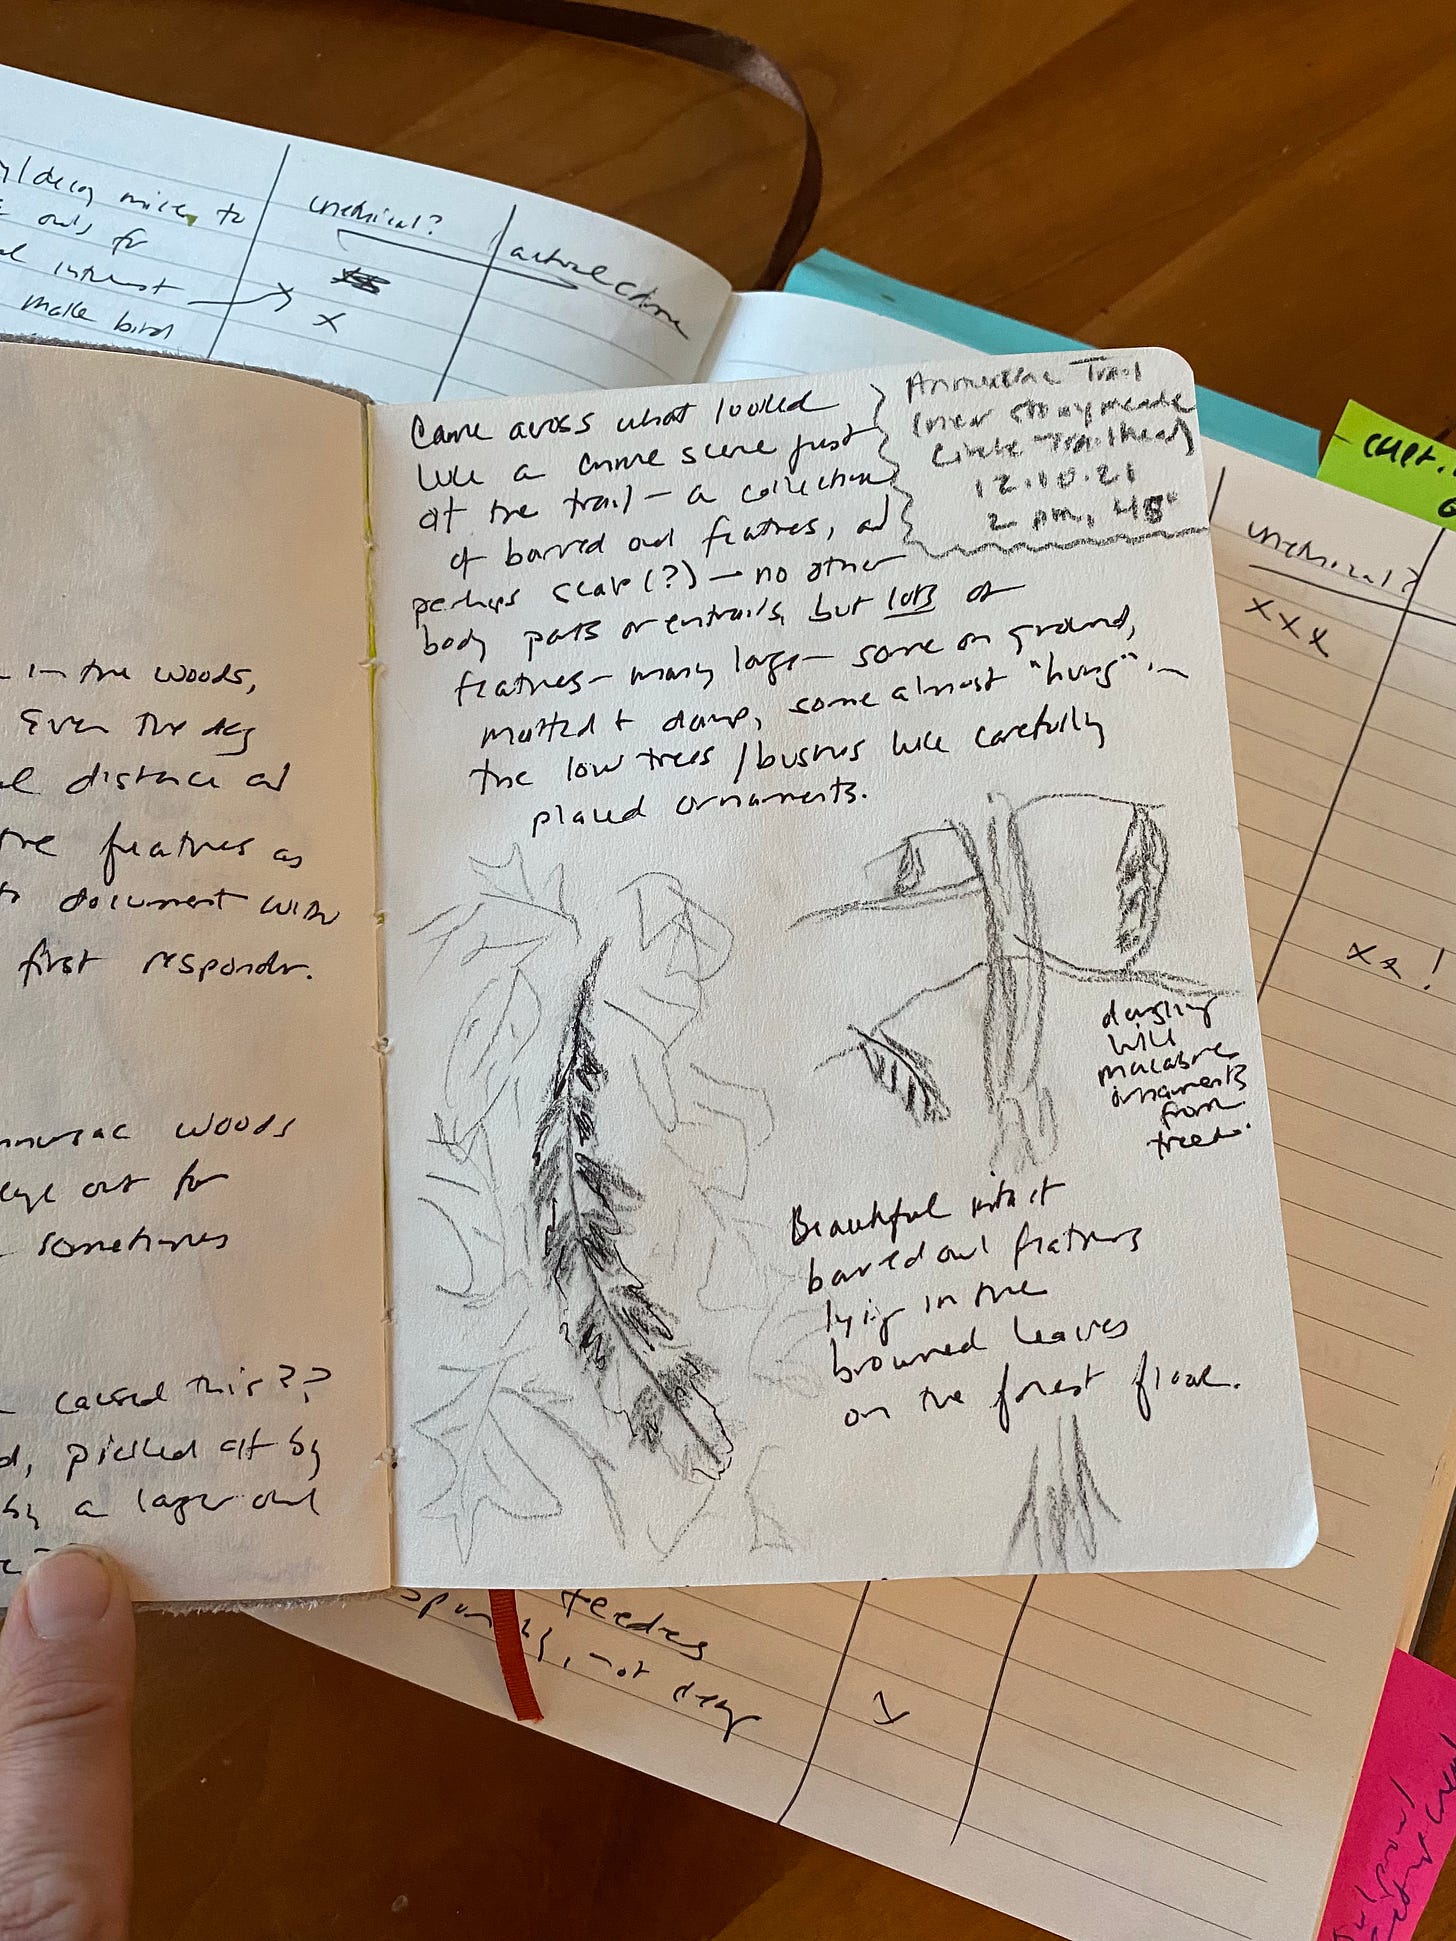 decoy mice, to
owls for
interest
make bird
unethical?
x
actual crime
in the woods,
Even the dog
distance and
the feathers as
to document with
first responder.
woods
eye out for
sometimes
caused this??
picked at by
by a larger owl
Came across what looked
like a crime scene just
off the trail – a collection
of barred owl feathers, and
perhaps scalp (?) – no other
body parts or entrails, but lots of
feathers – many large – some on ground,
matted + damp, some almost "hung" in
the low trees / bushes like carefully
placed ornaments.
Trail
(near Stonymeade
Circle Trailhead)
12.10.21
2 pm, 48°
dangling
like
macabre
ornaments
from
trees.
Beautiful intact
barred owl feathers
lying in the
browned leaves
on the forest floor.
unethical?
xxx
xx!
feeders
not
x